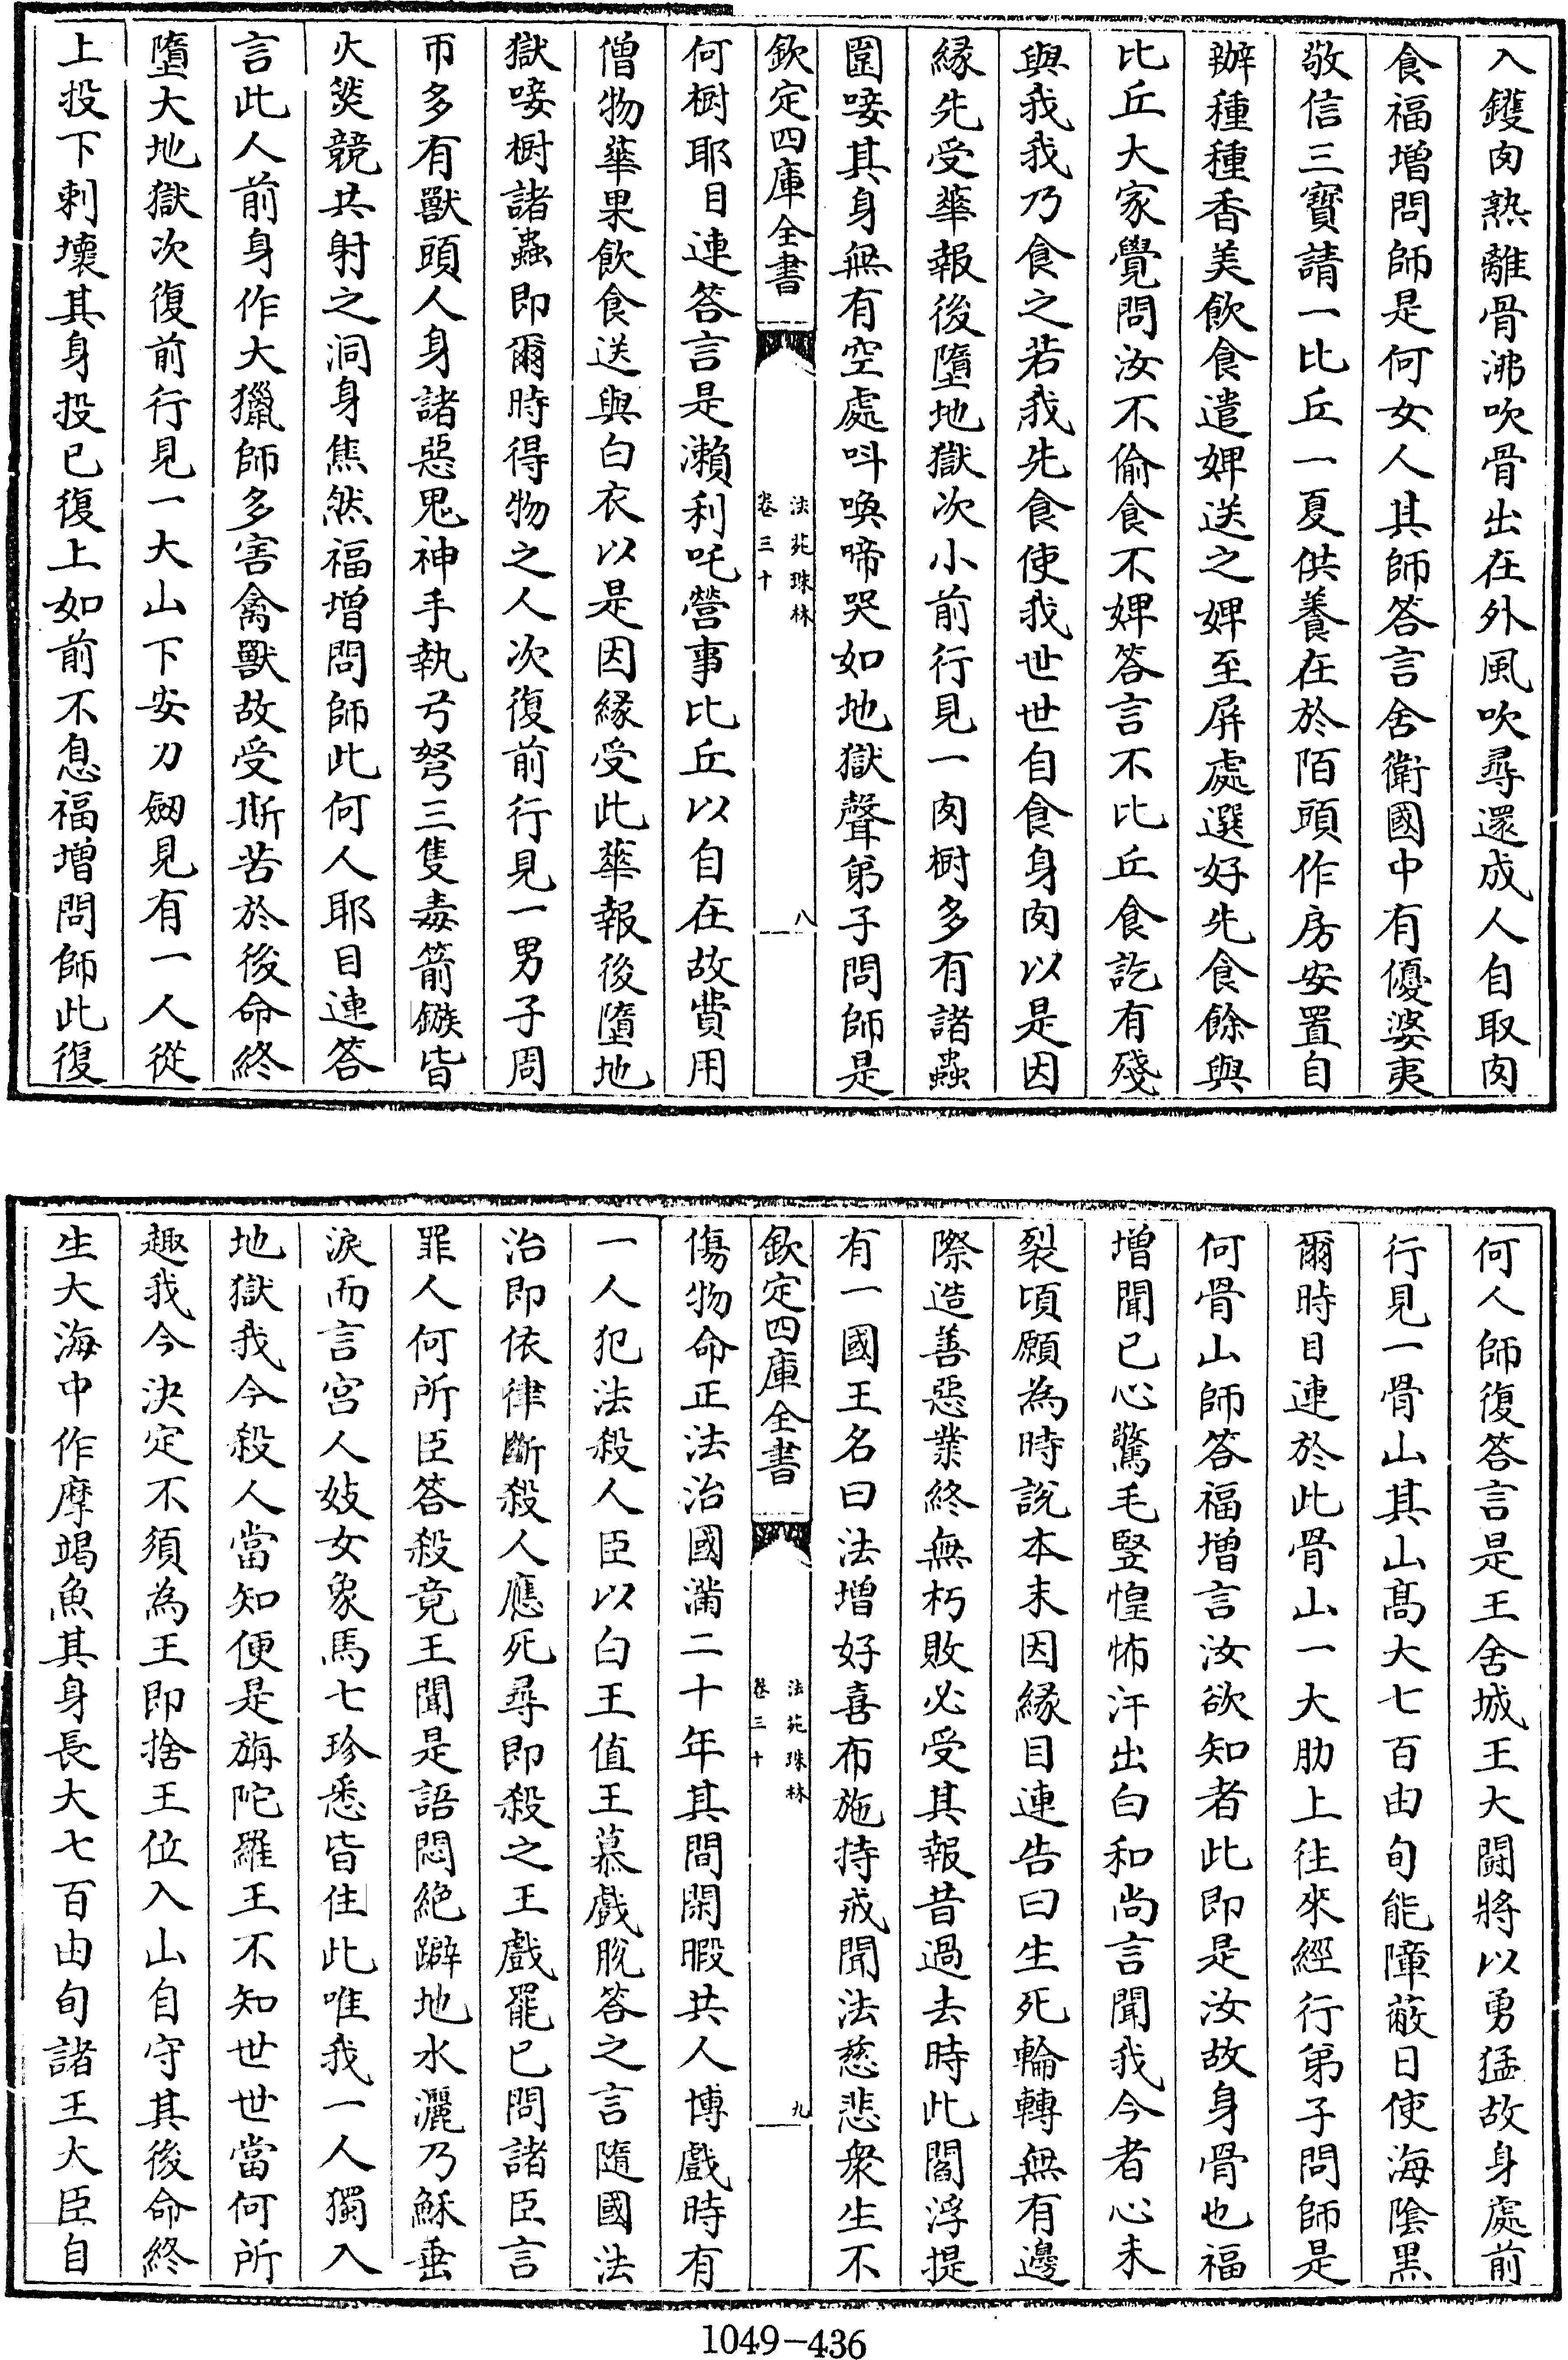 入鑊肉熟離骨沸吹骨出在外風吹尋還成人自取肉
食福増問師是何女人其師答言舍衛國中有優婆夷
敬信三寶請一比丘一夏供養在於陌頭作房安置自
辦種種香美飲食遣婢送之婢至屏處選好先食餘與
比丘大家覺問汝不偷食不婢答言不比丘食訖有殘
與我我乃食之若我先食使我世世自食身肉以是因
緣先受華報後墮地獄次小前行見一肉樹多有諸蟲
圍唼其身無有空處呌喚啼哭如地獄聲弟子問師是
欽定四庫全書
法苑珠林
卷三十
八
何樹耶目連答言是瀨利吒營事比丘以自在故費用
僧物華果飲食送與白衣以是因緣受此華報後墮地
獄唼樹諸蟲即爾時得物之人次復前行見一男子周
帀多有獸頭人身諸惡鬼神手執弓弩三隻毒箭鏃皆
火㷔競共射之洞身焦然福増問師此何人耶目連答
言此人前身作大獵師多害禽獸故受斯苦於後命終
墮大地獄次復前行見一大山下安刀劒見有一人從
上投下刺壞其身投已復上如前不息福増問師此復
何人師復答言是王舍城王大鬭將以勇猛故身處前
行見一骨山其山髙大七百由旬能障蔽日使海陰黒
爾時目連於此骨山一大肋上往來經行弟子問師是
何骨山師答福増言汝欲知者此即是汝故身骨也福
増聞已心驚毛竪惶怖汗出白和尚言聞我今者心未
裂頃願為時說本末因緣目連告曰生死輪轉無有邊
際造善惡業終無朽敗必受其報昔過去時此閻浮提
有一國王名曰法増好喜布施持戒聞法慈悲衆生不
欽定四庫全書
法苑珠林
卷三十
九
傷物命正法治國滿二十年其間閑暇共人博戲時有
一人犯法殺人臣以白王值王慕戲脫答之言隨國法
治即依律斷殺人應死尋即殺之王戲罷已問諸臣言
罪人何所臣答殺竟王聞是語悶絶躃地水灑乃穌垂
淚而言宮人妓女象馬七珍悉皆住此唯我一人獨入
地獄我今殺人當知便是旃陀羅王不知世世當何所
趣我今決定不須為王即捨王位入山自守其後命終
生大海中作摩竭魚其身長大七百由旬諸王大臣自
1049-436